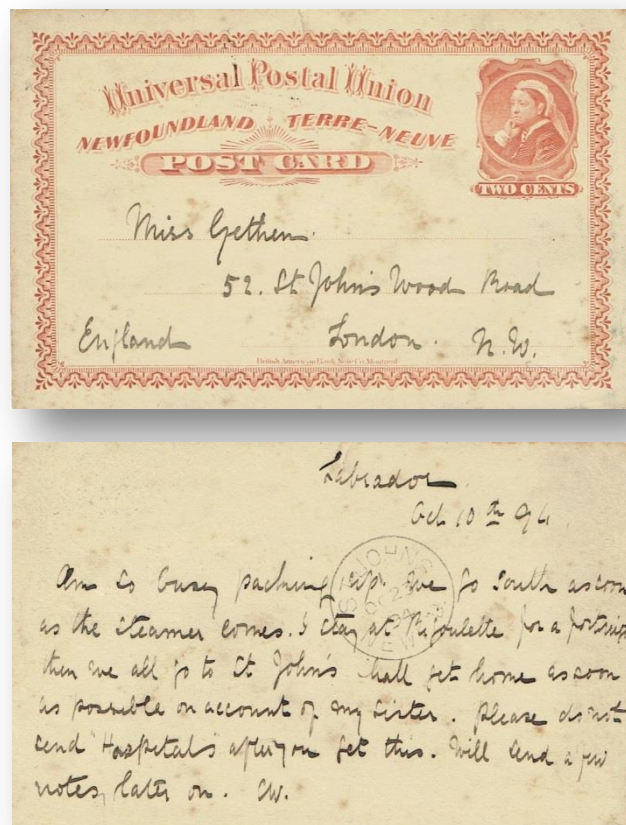 Universal Postal Union
NEWFOUNDLAND TERRE-NEUVE
POST CARD
TWO CENTS
Miss Gethen.
52. St John's Wood Road
England London. N.W.
British American Bank Note Co. Montreal
Labrador
Oct 10th 94.
Am so busy packing up. We go South as soon
as the steamer comes. I stay at Rigoulette for a fortnight
then we all go to St John's shall get home as soon
as possible on account of my sister. Please do not
send "Hospitals" after you get this. Will send a few
notes, later on. CW.
ST JOHN'S
OC 2
94
NEWF